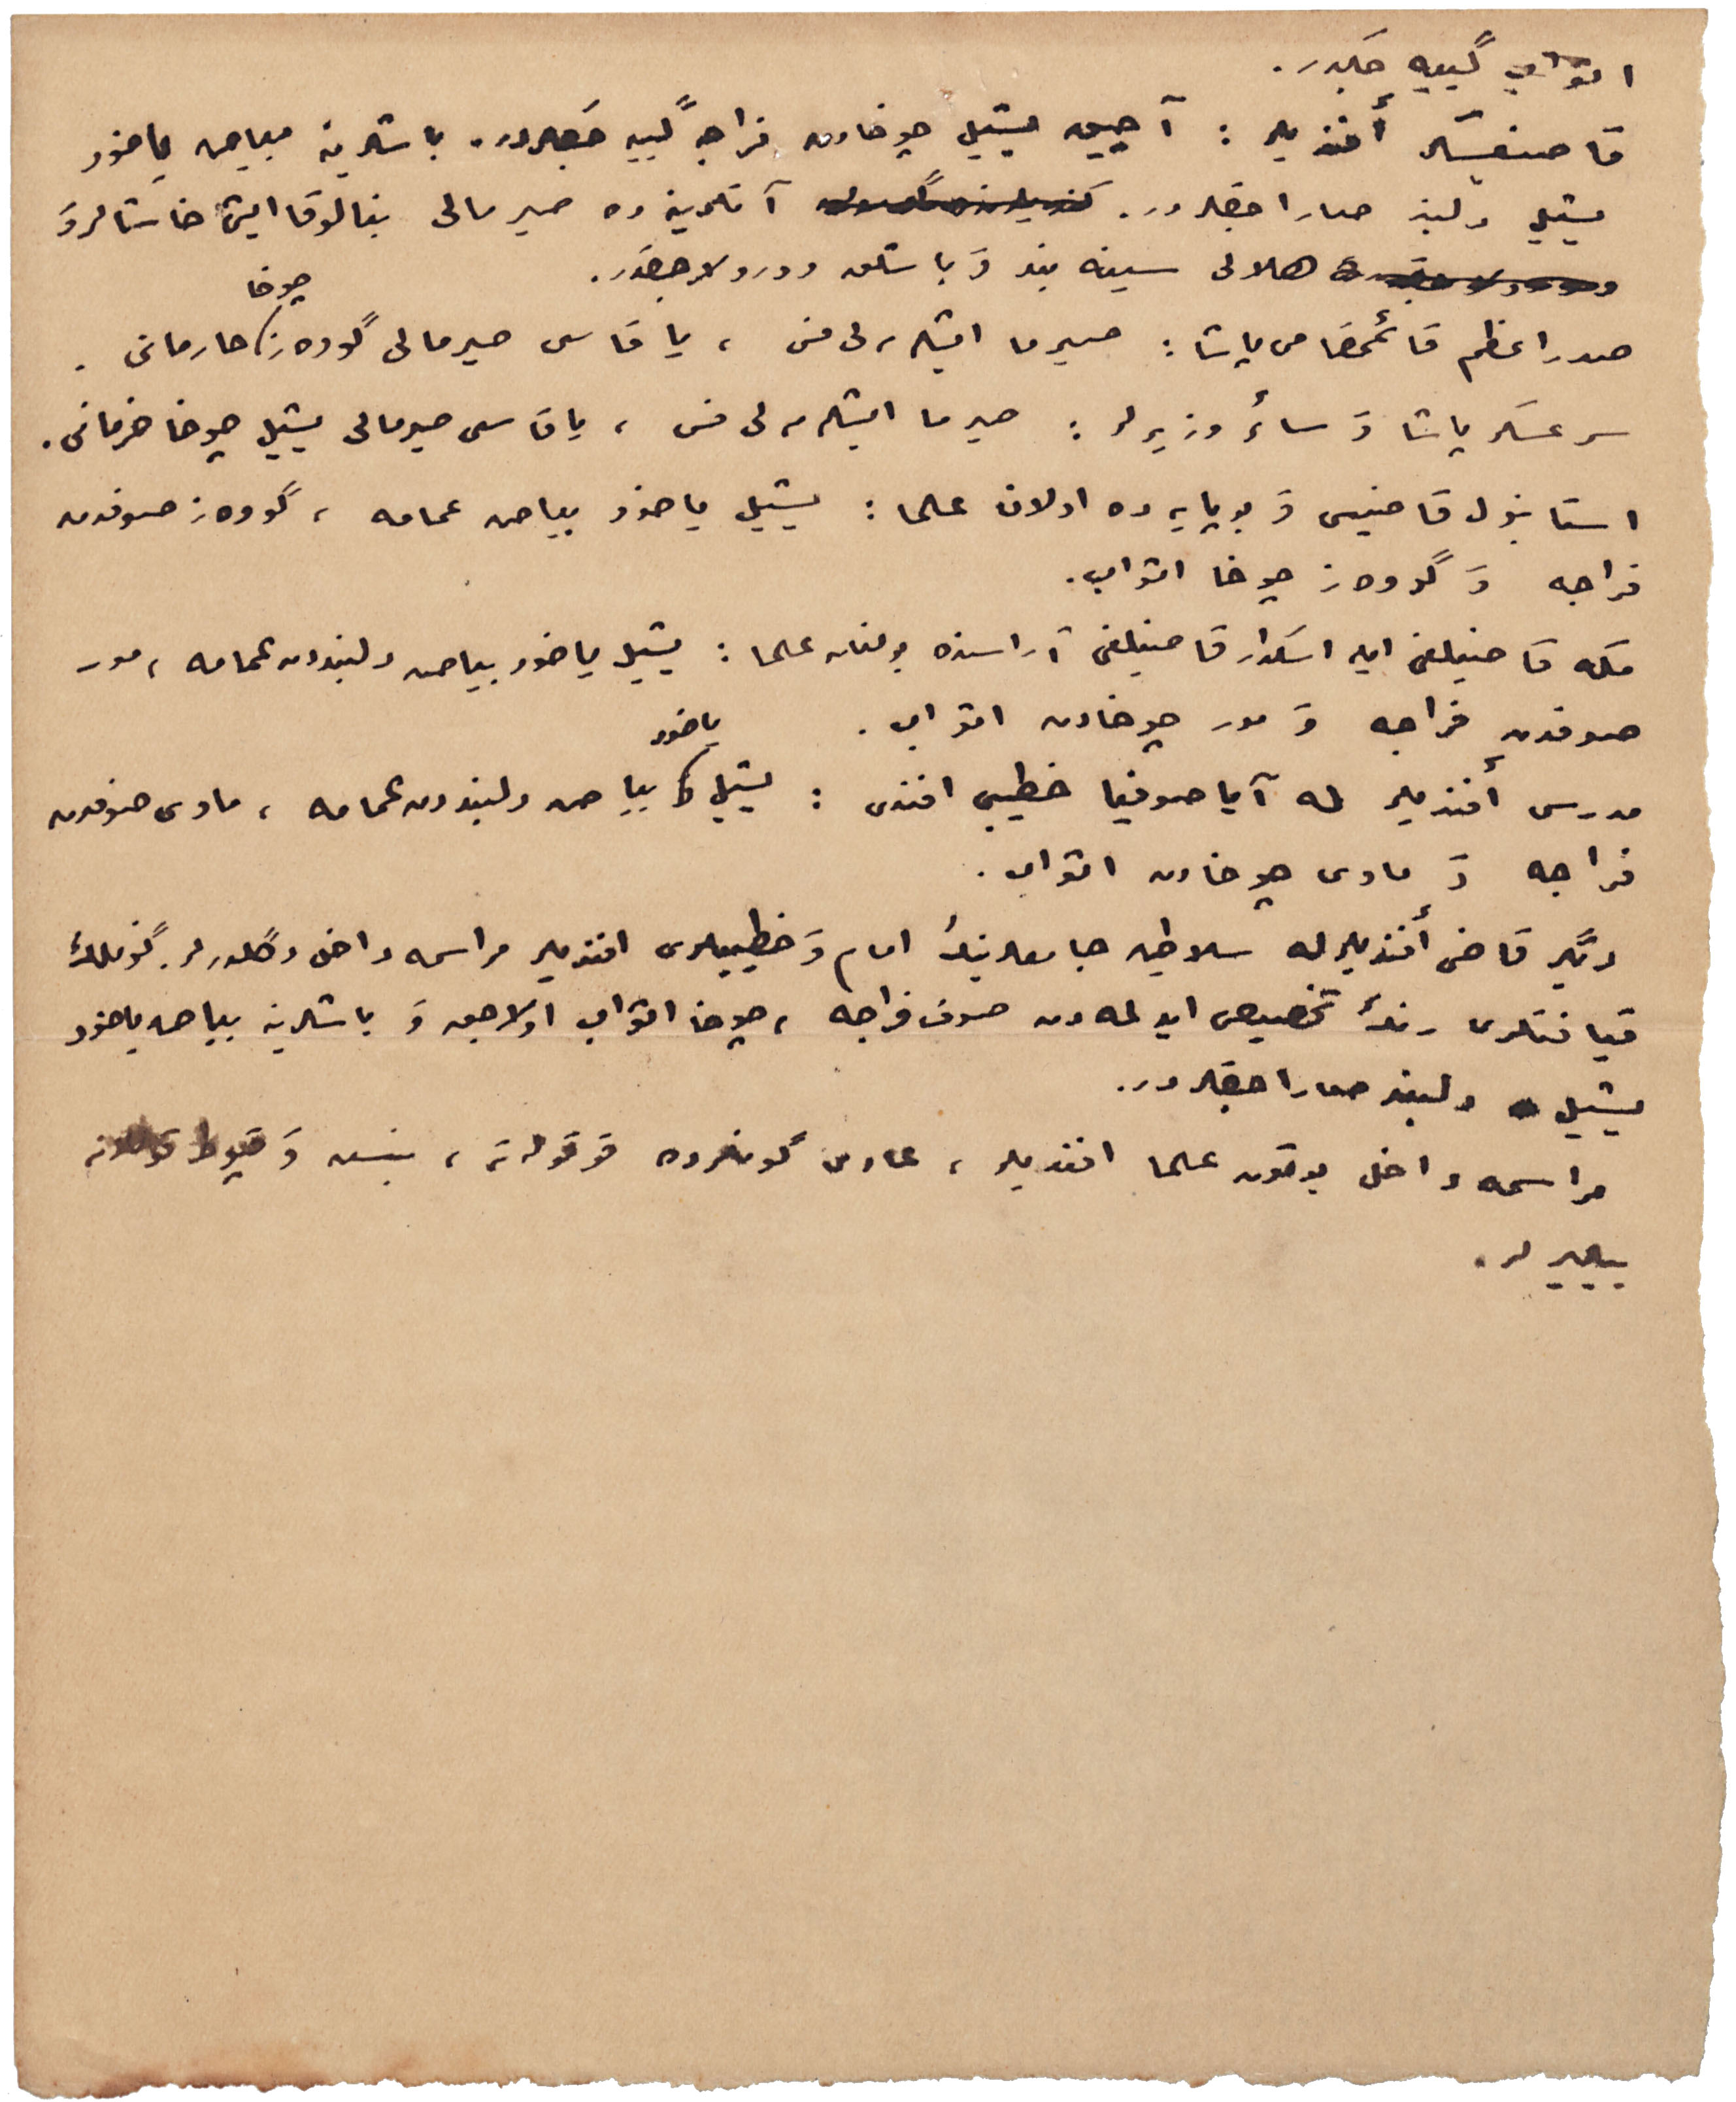 اثواب گییه جکدر.
قاضیعسکر أفندیلر : آچیق یشیل چوخادن فراجه گییه جکلردر. باشلرینه بیاض یاخود
یشیل دلبند صاراجقلردر. آتلرینه ده صیرمالی خاشالر وَ
هلالی سینه بند وَ باشلق وورولاجقدر.
صدراعظم قائمقامی پاشا : صیرما ایشلمه لی فس ، یاقاسی صیرمالی گووه ز چوخا حارمانی .
سرعسکر پاشا وَ سائر وزیرلر : صیرما ایشلمه لی فس ، یاقاسی صیرمالی یشیل چوخا خرمانی.
استانبول قاضیسی وَ بو پایه ده اولان علما : یشیل یاخود بیاض عمامه ، گووه ز صوفدن
فراجه وَ گووه ز چوخا اثواب.
مکه قاضیلغی ایله اسکدار قاضیلغی آراسنده بولنان علما : یشیل یاخود بیاض دلبنددن عمامه ، مور
صوفدن فراجه وَ مور چوخادن اثواب .
مدرس أفندیلر له آیا صوفیا خطیبی افندی : یشیل یاخود بیاض دلبنددن عمامه ، ماوی صوفدن
فراجه وَ ماوی چوخادن اثواب .
دیگر قاضی أفندیلرله سلاطین جامعلرینڭ امام وَ خطیبلری افندیلر مراسمه داخل دگلدرلر. گونلك
قیافتلری رنڭ تخصیص ایدلمه دن صوف فراجه ، چوخا اثواب اولاجق وَ باشلرینه بیاض یاخود
یشیل دلبند صاراجقلردر.
مراسمه داخل بوتون علما افندیلر ، عادی گونلرده قوقولته ، بنیش وَ
بیلیرلر .